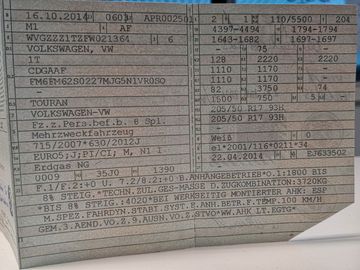 16.10.2014 0603 APR002501 2 1 110/5500 204
M1 AF 4397-4494 1794-1794
WVGZZZ1TZFW021364 6 1643-1682 1697-1697
VOLKSWAGEN, VW - 75
1T 128 2220 -
CDGAAF 1110 1110 -
FM6FM62S0227MJG5N1VR0SO 1110 1170 -
- 82 3750 74
TOURAN 1500 750 5
VOLKSWAGEN-VW 205/50 R17 93H
Fz.z.Pers.bef.b. 8 Spl. 205/50 R17 93H
Mehrzweckfahrzeug -
715/2007*630/2012J Weiß
EURO5;J;PI/CI; M, N1 I e1*2001/116*0211*34
Erdgas NG 22.04.2014 EJ633502
0009 35J0 1390
F.1/F.2:+0 U. 7.2/8.2:+0 B.ANHANGEBETRIEB*O.1:1800 BIS
8% STEIG.*TECHN.ZUL.GES-MASSE D.ZUGKOMBINATION:3720KG
*BIS 8% STEIG.:4020*BEI WERKSEITIG MONTIERTER AHK: ESP
M.SPEZ.FAHRDYN.STABI.SYST.E.ANH.BETR.F.TEMP.100 KM/H
GEM.3.AEND.VO Z.9.AUSN.VO Z.STVO*WW.AHK LT.EGTG*